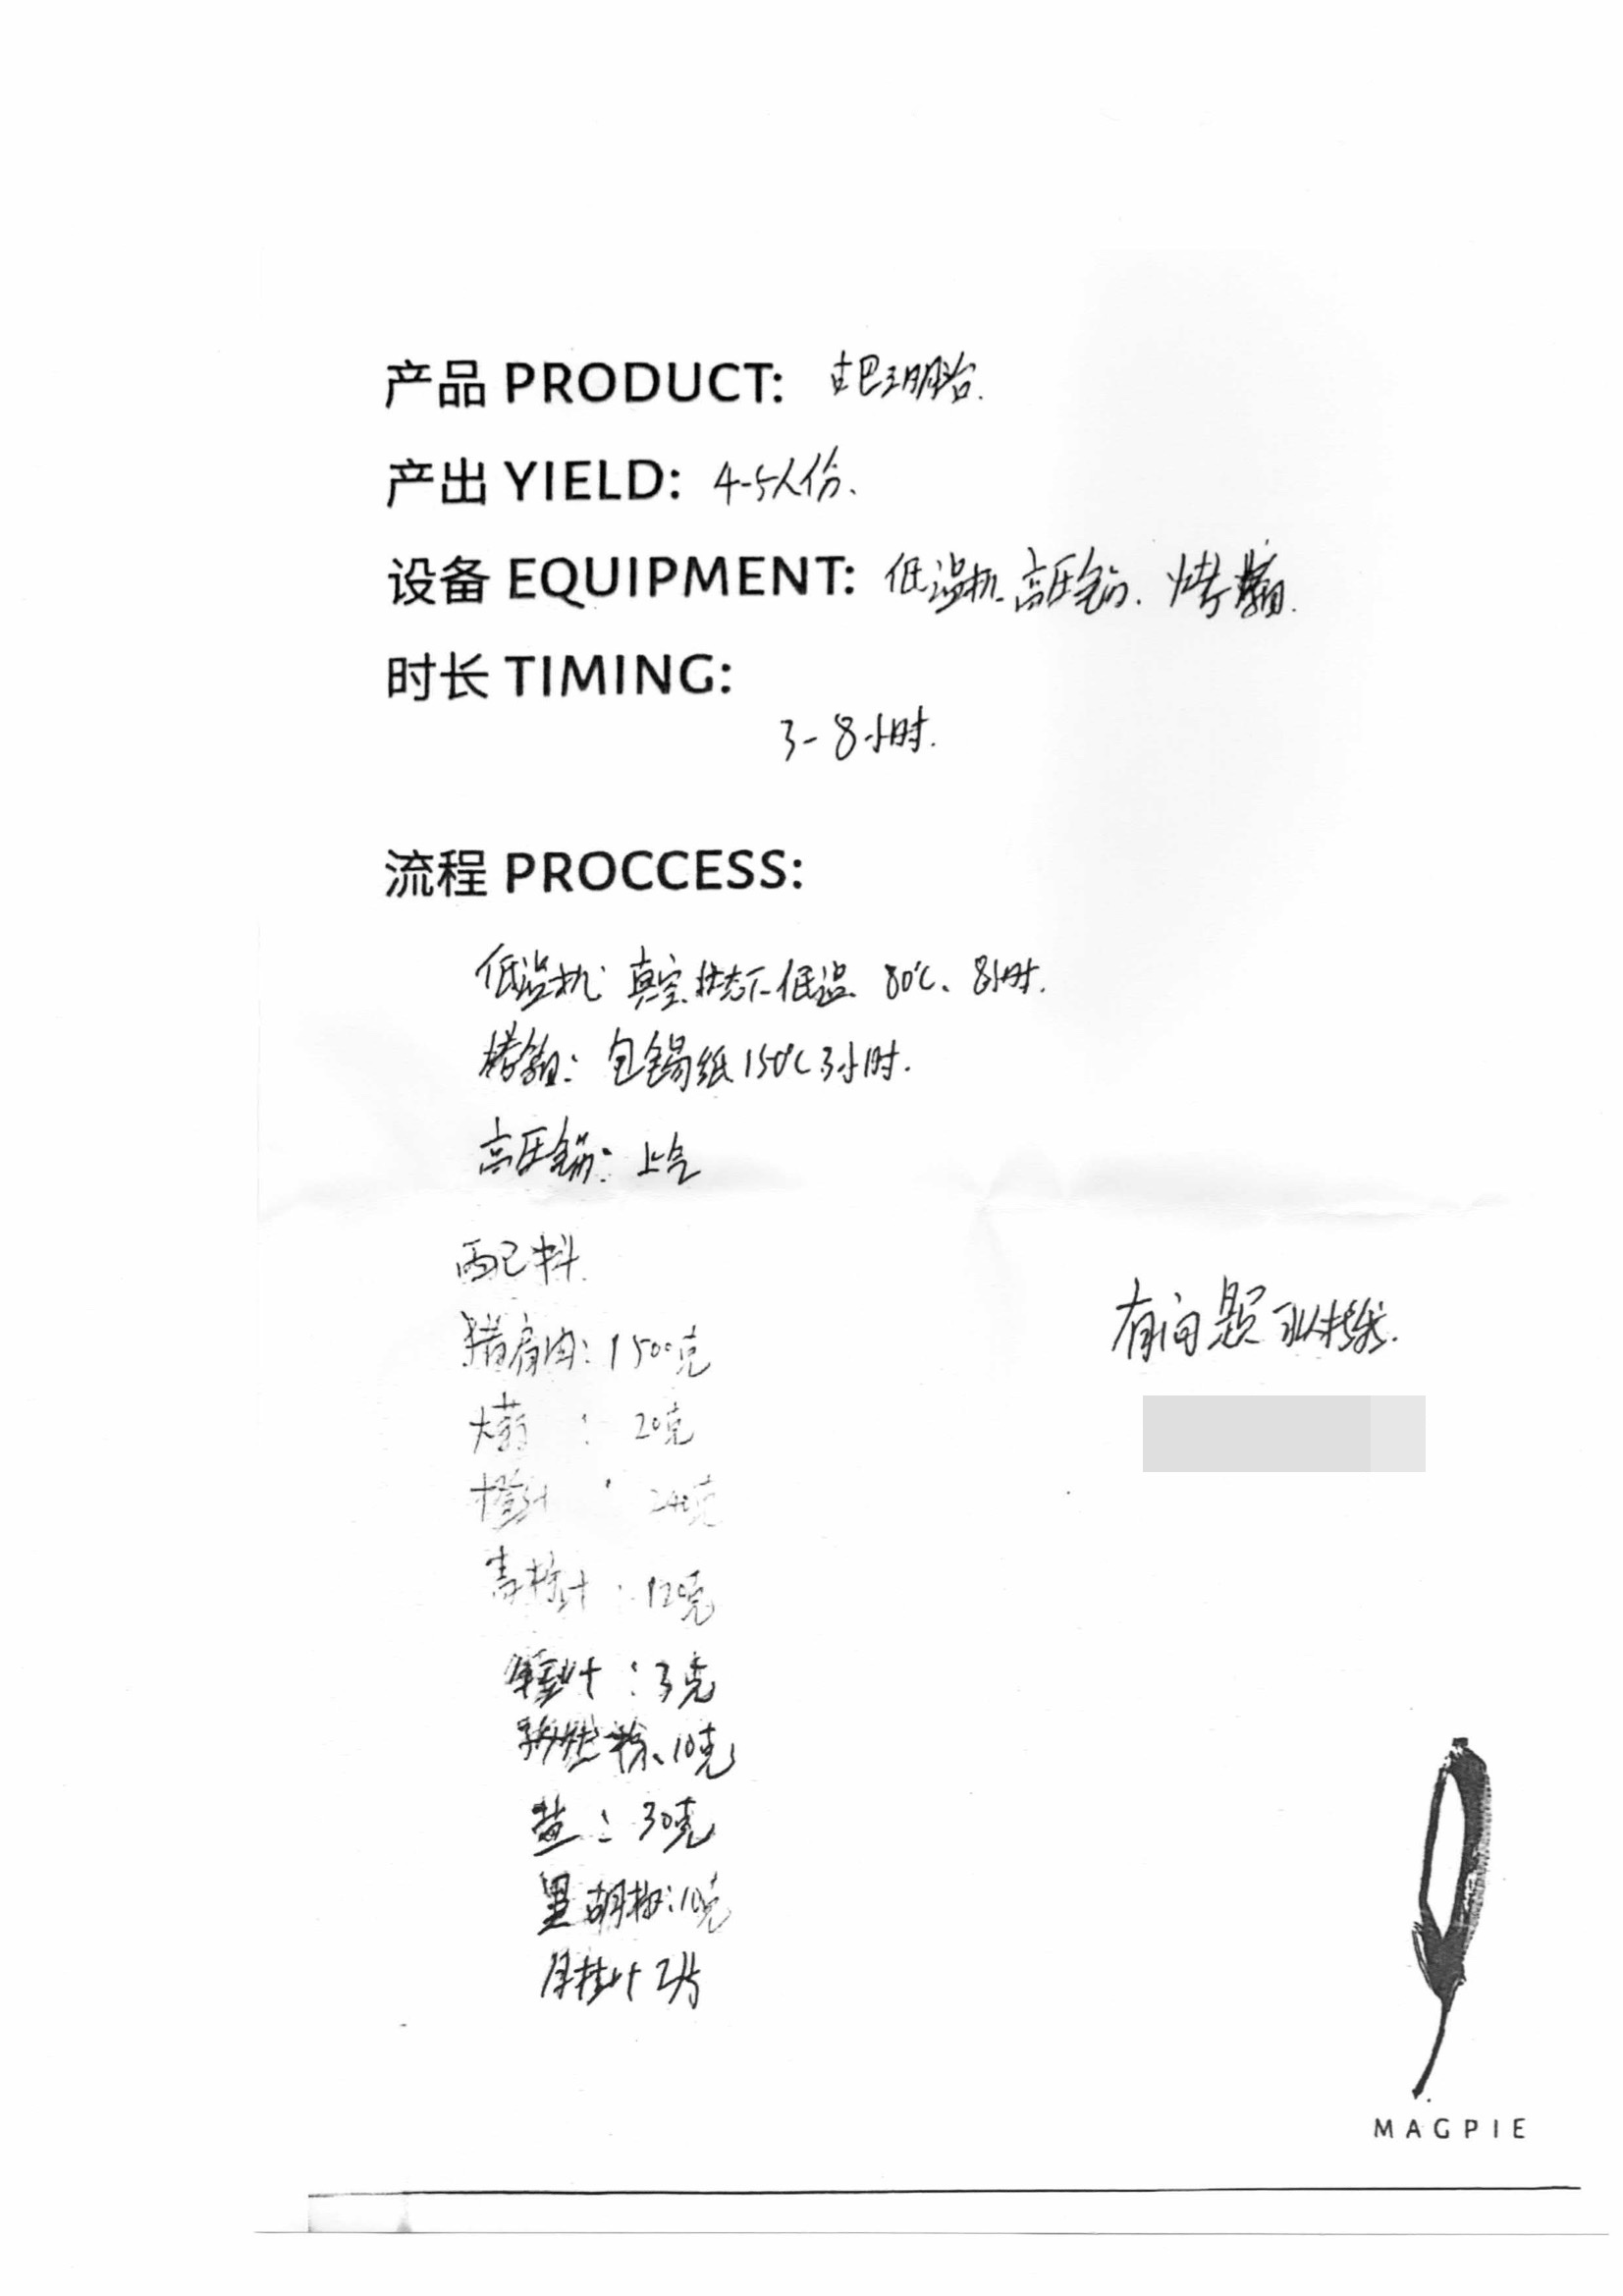 产品 PRODUCT: 古巴三明治.
产出 YIELD: 4-5人份、
设备 EQUIPMENT: 低温机、高压锅、烤箱.
时长 TIMING:
3-8小时.
流程 PROCCESS:
低温机: 真空状态下低温 80℃、8小时.
烤箱: 包锡纸 150℃ 3小时.
高压锅: 上气
配料
猪肩肉: 1500克
大蒜 : 20克
橙汁 : 240克
青柠汁 : 120克
: 3克
孜然粉、10克
盐: 30克
黑胡椒: 10克
月桂叶 2片
有问题可以找我.
MAGPIE